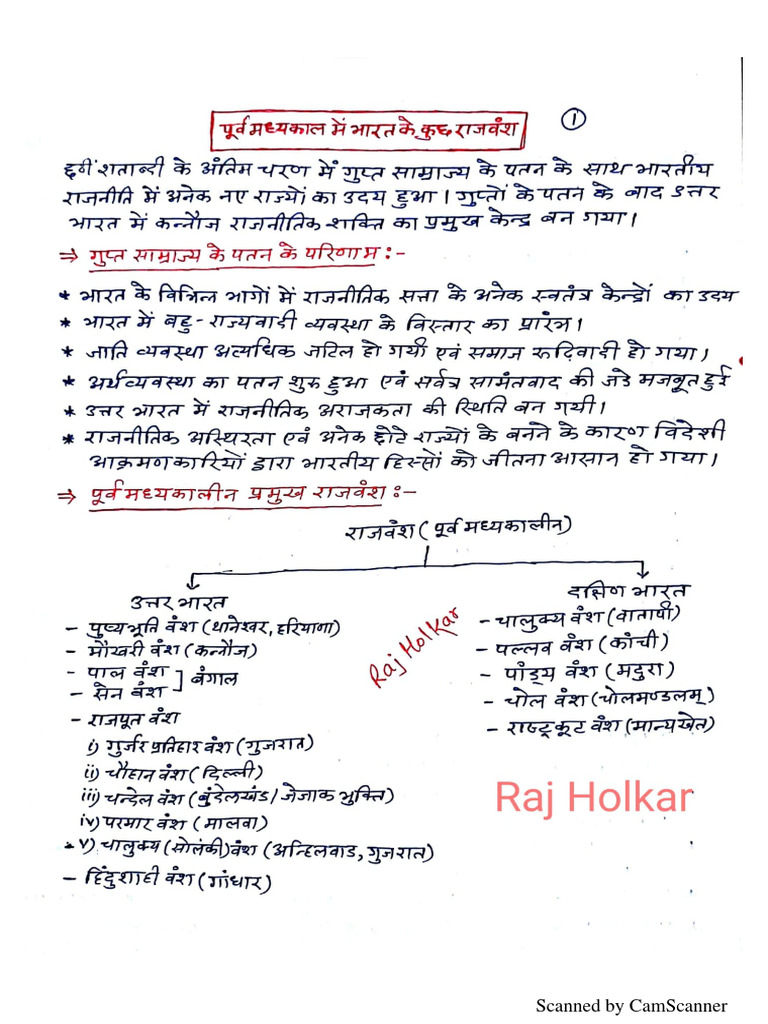 पूर्व मध्यकाल में भारत के कुछ राजवंश
1
छठीं शताब्दी के अंतिम चरण में गुप्त साम्राज्य के पतन के साथ भारतीय
राजनीति में अनेक नए राज्यों का उदय हुआ। गुप्तों के पतन के बाद उत्तर
भारत में कन्नौज राजनीतिक शक्ति का प्रमुख केन्द्र बन गया।
⇒ गुप्त साम्राज्य के पतन के परिणाम :-
* भारत के विभिन्न भागों में राजनीतिक सत्ता के अनेक स्वतंत्र केन्द्रों का उदय
* भारत में बहु-राज्यवादी व्यवस्था के विस्तार का प्रारंभ।
* जाति व्यवस्था अत्यधिक जटिल हो गयी एवं समाज रूढिवादी हो गया।
* अर्थव्यवस्था का पतन शुरू हुआ एवं सर्वत्र सामंतवाद की जडे मजबूत हुई
* उत्तर भारत में राजनीतिक अराजकता की स्थिति बन गयी।
* राजनीतिक अस्थिरता एवं अनेक छोटे राज्यों के बनने के कारण विदेशी
आक्रमणकारियों द्वारा भारतीय हिस्सों को जीतना आसान हो गया।
⇒ पूर्व मध्यकालीन प्रमुख राजवंश :-
राजवंश (पूर्व मध्यकालीन)
उत्तर भारत
- पुष्यभूति वंश (थानेश्वर, हरियाणा)
- मौखरी वंश (कन्नौज)
- पाल वंश
- सेन वंश ] बंगाल
- राजपूत वंश
i) गुर्जर प्रतिहार वंश (गुजरात)
ii) चौहान वंश (दिल्ली)
iii) चन्देल वंश (बुंदेलखंड/जेजाक भुक्ति)
iv) परमार वंश (मालवा)
v) चालुक्य (सोलंकी) वंश (अन्हिलवाड, गुजरात)
- हिंदुशाही वंश (गांधार)
दक्षिण भारत
- चालुक्य वंश (वातापी)
- पल्लव वंश (कांची)
- पाँड्य वंश (मदुरा)
- चोल वंश (चोलमण्डलम्)
- राष्ट्रकूट वंश (मान्यखेत)
Raj Holkar
Raj Holkar
Scanned by CamScanner